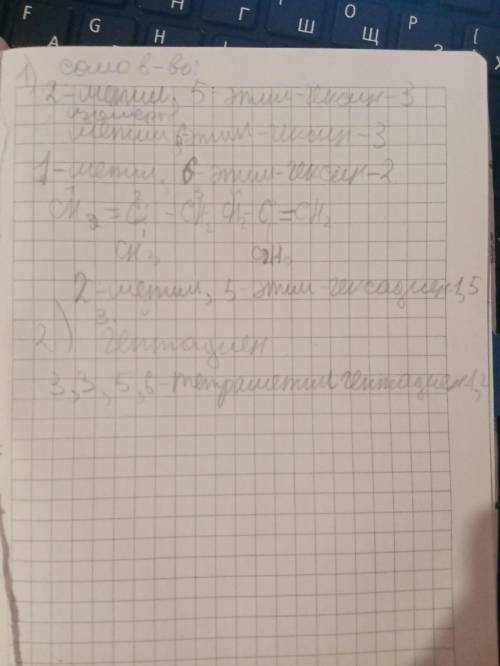 F G Н Г Ш О Щ Р
А
1) само в-во:
2-метил, 5-этил-гексин-3
изомеры
метил, 6-этил-гексин-3
1-метил, 6-этил-гексин-2
CH2 = C - CH2 CH2 - C = CH2
2-метил, 5-этил-гексадиен 1,5
2) 3.
гептадиен
3,3,5,6-тетраметилгептадиен 1,